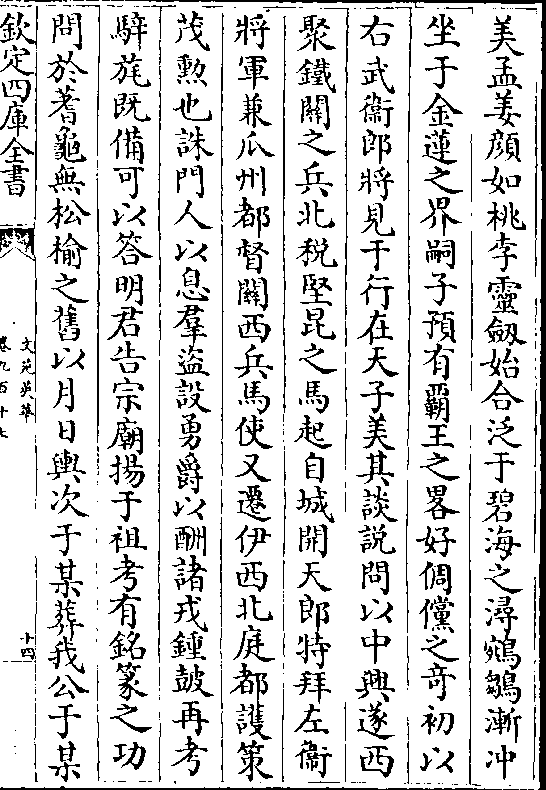 美孟姜顔如桃李靈劔始合泛于碧海之潯鵷鶵漸冲
坐于金蓮之界嗣子預有覇王之畧好倜儻之竒初以
右武衞郎將見于行在天子美其談説問以中興遂西
聚鐵闗之兵北税堅昆之馬起自城開天郎特拜左衞
將軍兼瓜州都督闗西兵馬使又遷伊西北庭都護策
茂勲也誅門人以息羣盗設勇爵以酬諸戎鍾皷再考
騂旄既備可以答明君告宗廟揚于祖考有銘篆之功
問於蓍龜無松榆之舊以月日輿次于某葬我公于某
欽定四庫全書
文苑英華
卷九百十七
十四